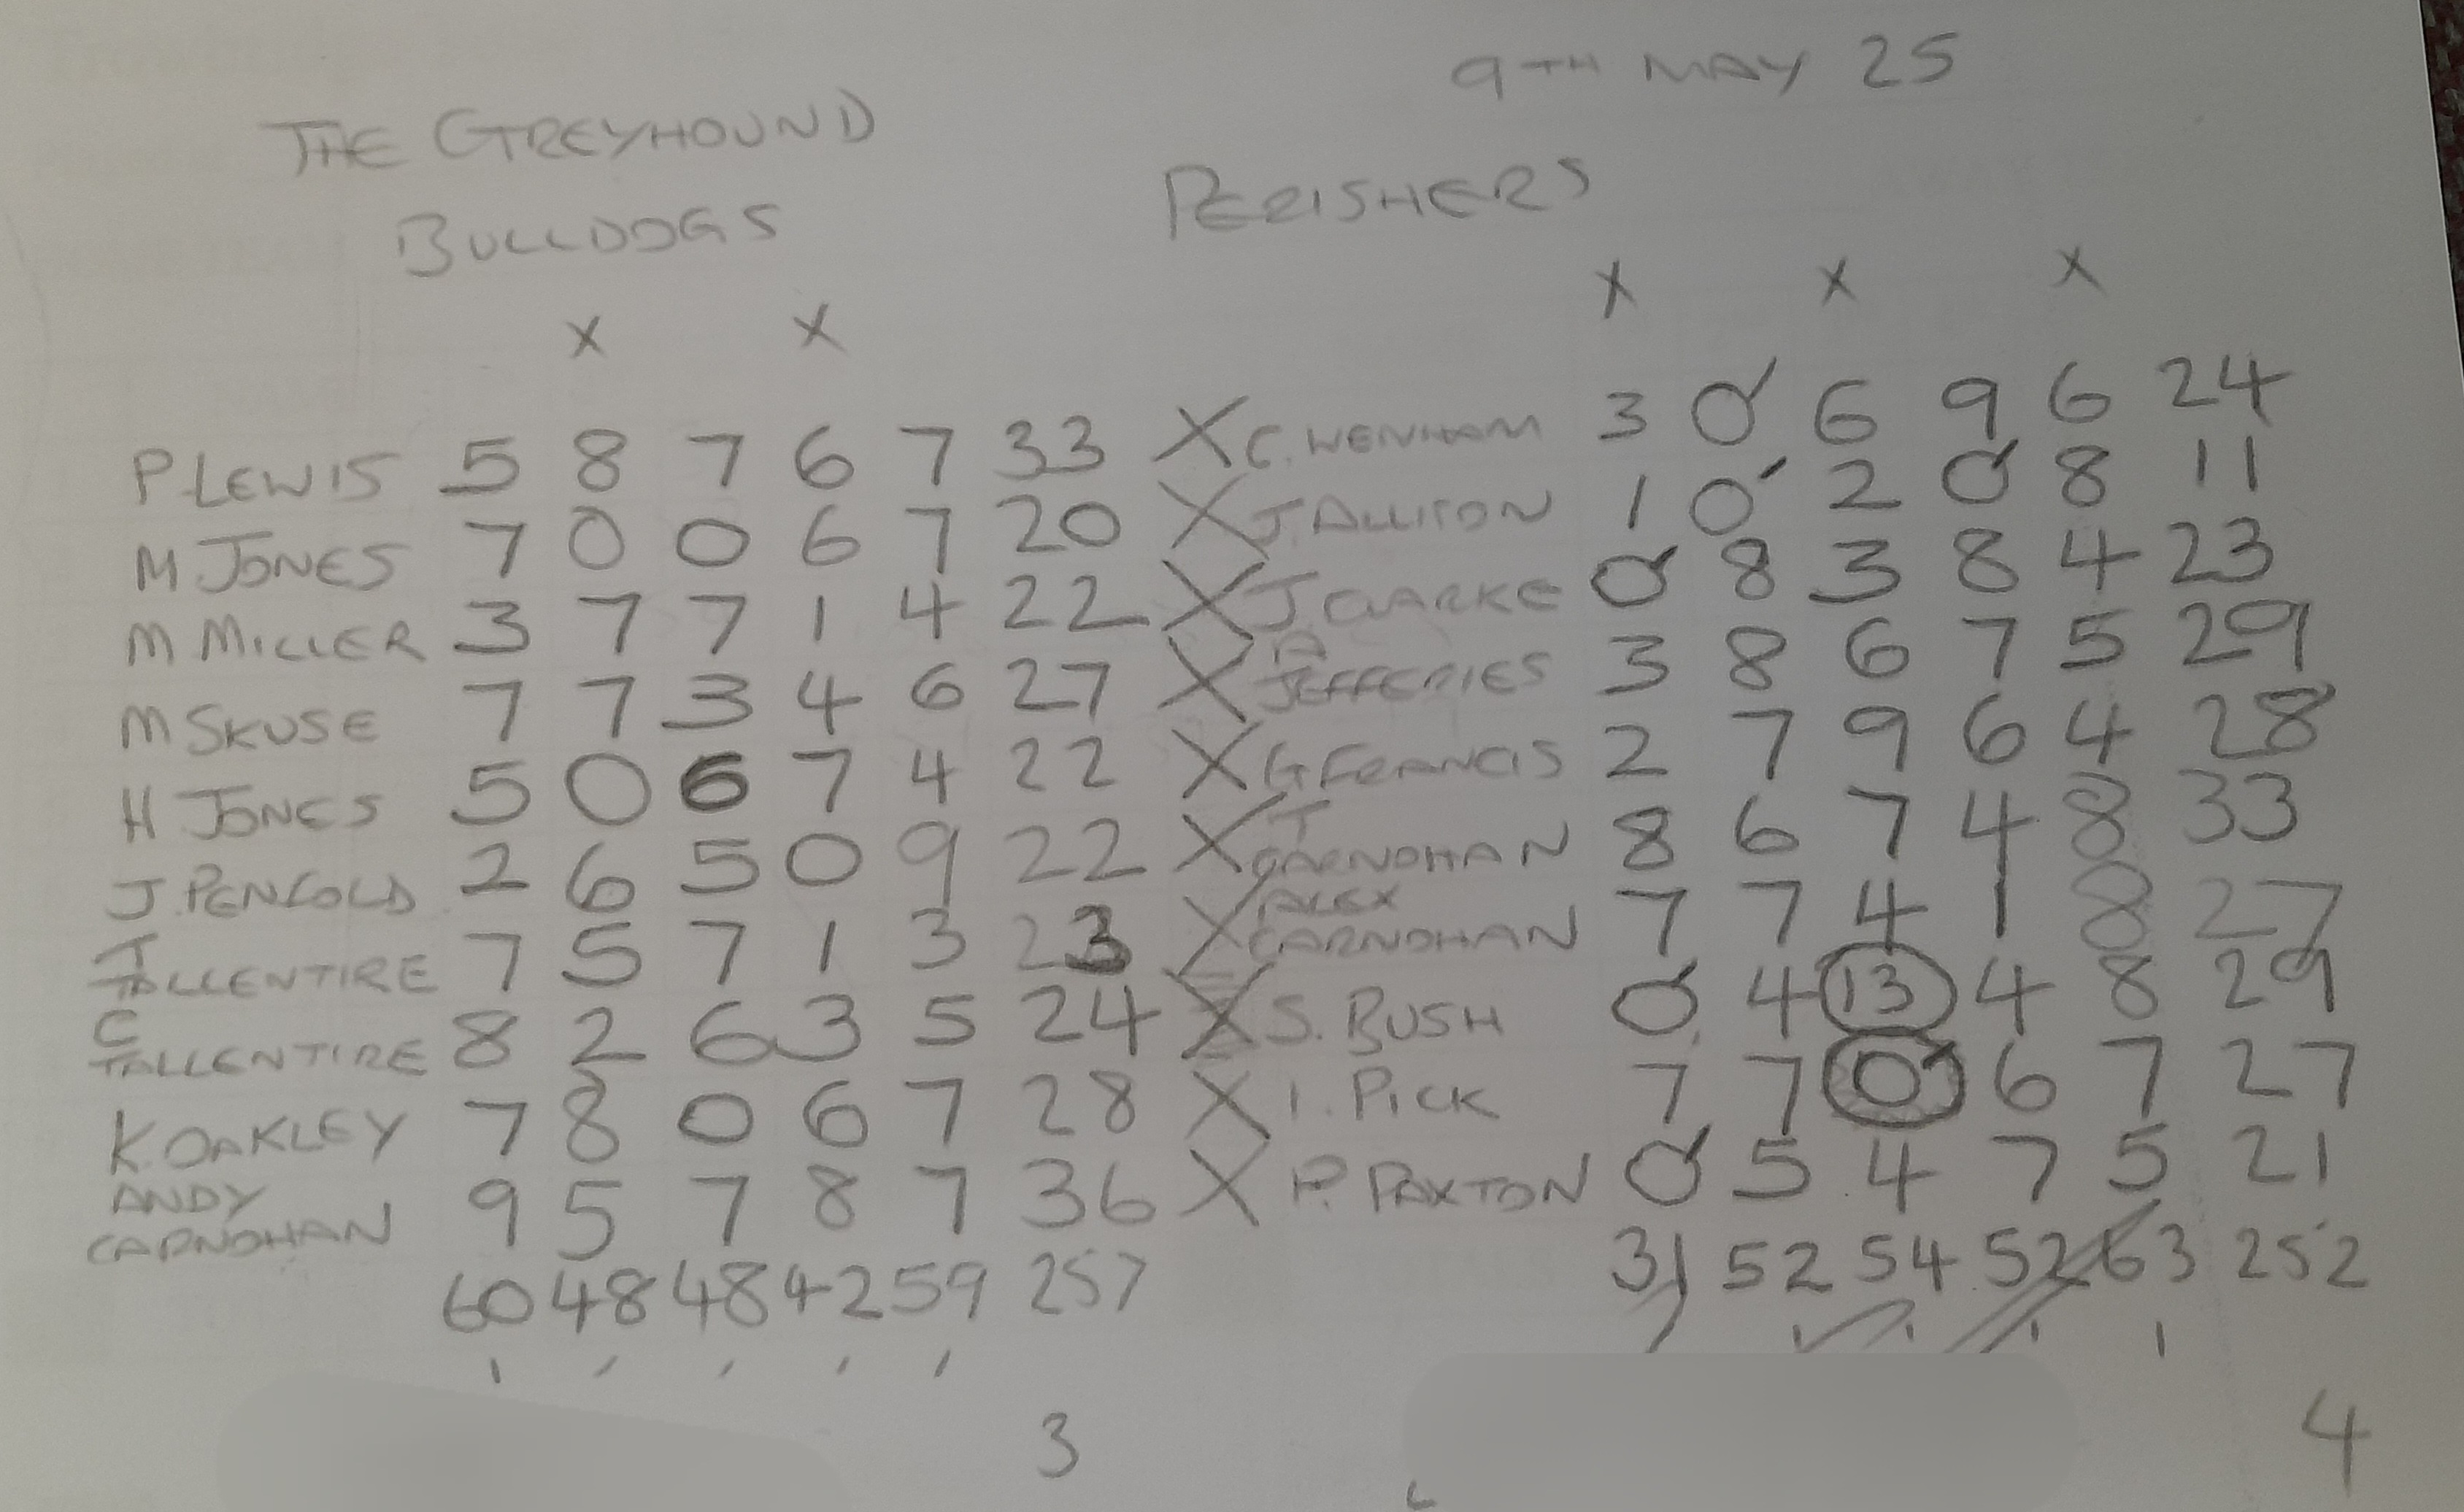 9TH MAY 25
THE GREYHOUND
BULLDOGS
PERISHERS
X X
X X X
P LEWIS 5 8 7 6 7 33 X C. WENHAM 3 0 6 9 6 24
M JONES 7 0 0 6 7 20 X J. ALLISON 1 0 2 0 8 11
M MILLER 3 7 7 1 4 22 X J. CLARKE 0 8 3 8 4 23
M SKUSE 7 7 3 4 6 27 X A JEFFERIES 3 8 6 7 5 29
H JONES 5 0 6 7 4 22 X G FRANCIS 2 7 9 6 4 28
J. PENFOLD 2 6 5 0 9 22 X T CARNOHAN 8 6 7 4 8 33
T TALLENTIRE 7 5 7 1 3 23 X ALEX CARNOHAN 7 7 4 1 8 27
C TALLENTIRE 8 2 6 3 5 24 X S. BUSH 0 4 13 4 8 29
K. OAKLEY 7 8 0 6 7 28 X I. PICK 7 7 0 6 7 27
ANDY CARNOHAN 9 5 7 8 7 36 X P. PAXTON 0 5 4 7 5 21
60 48 48 42 59 257 31 52 54 52 63 252
3 4